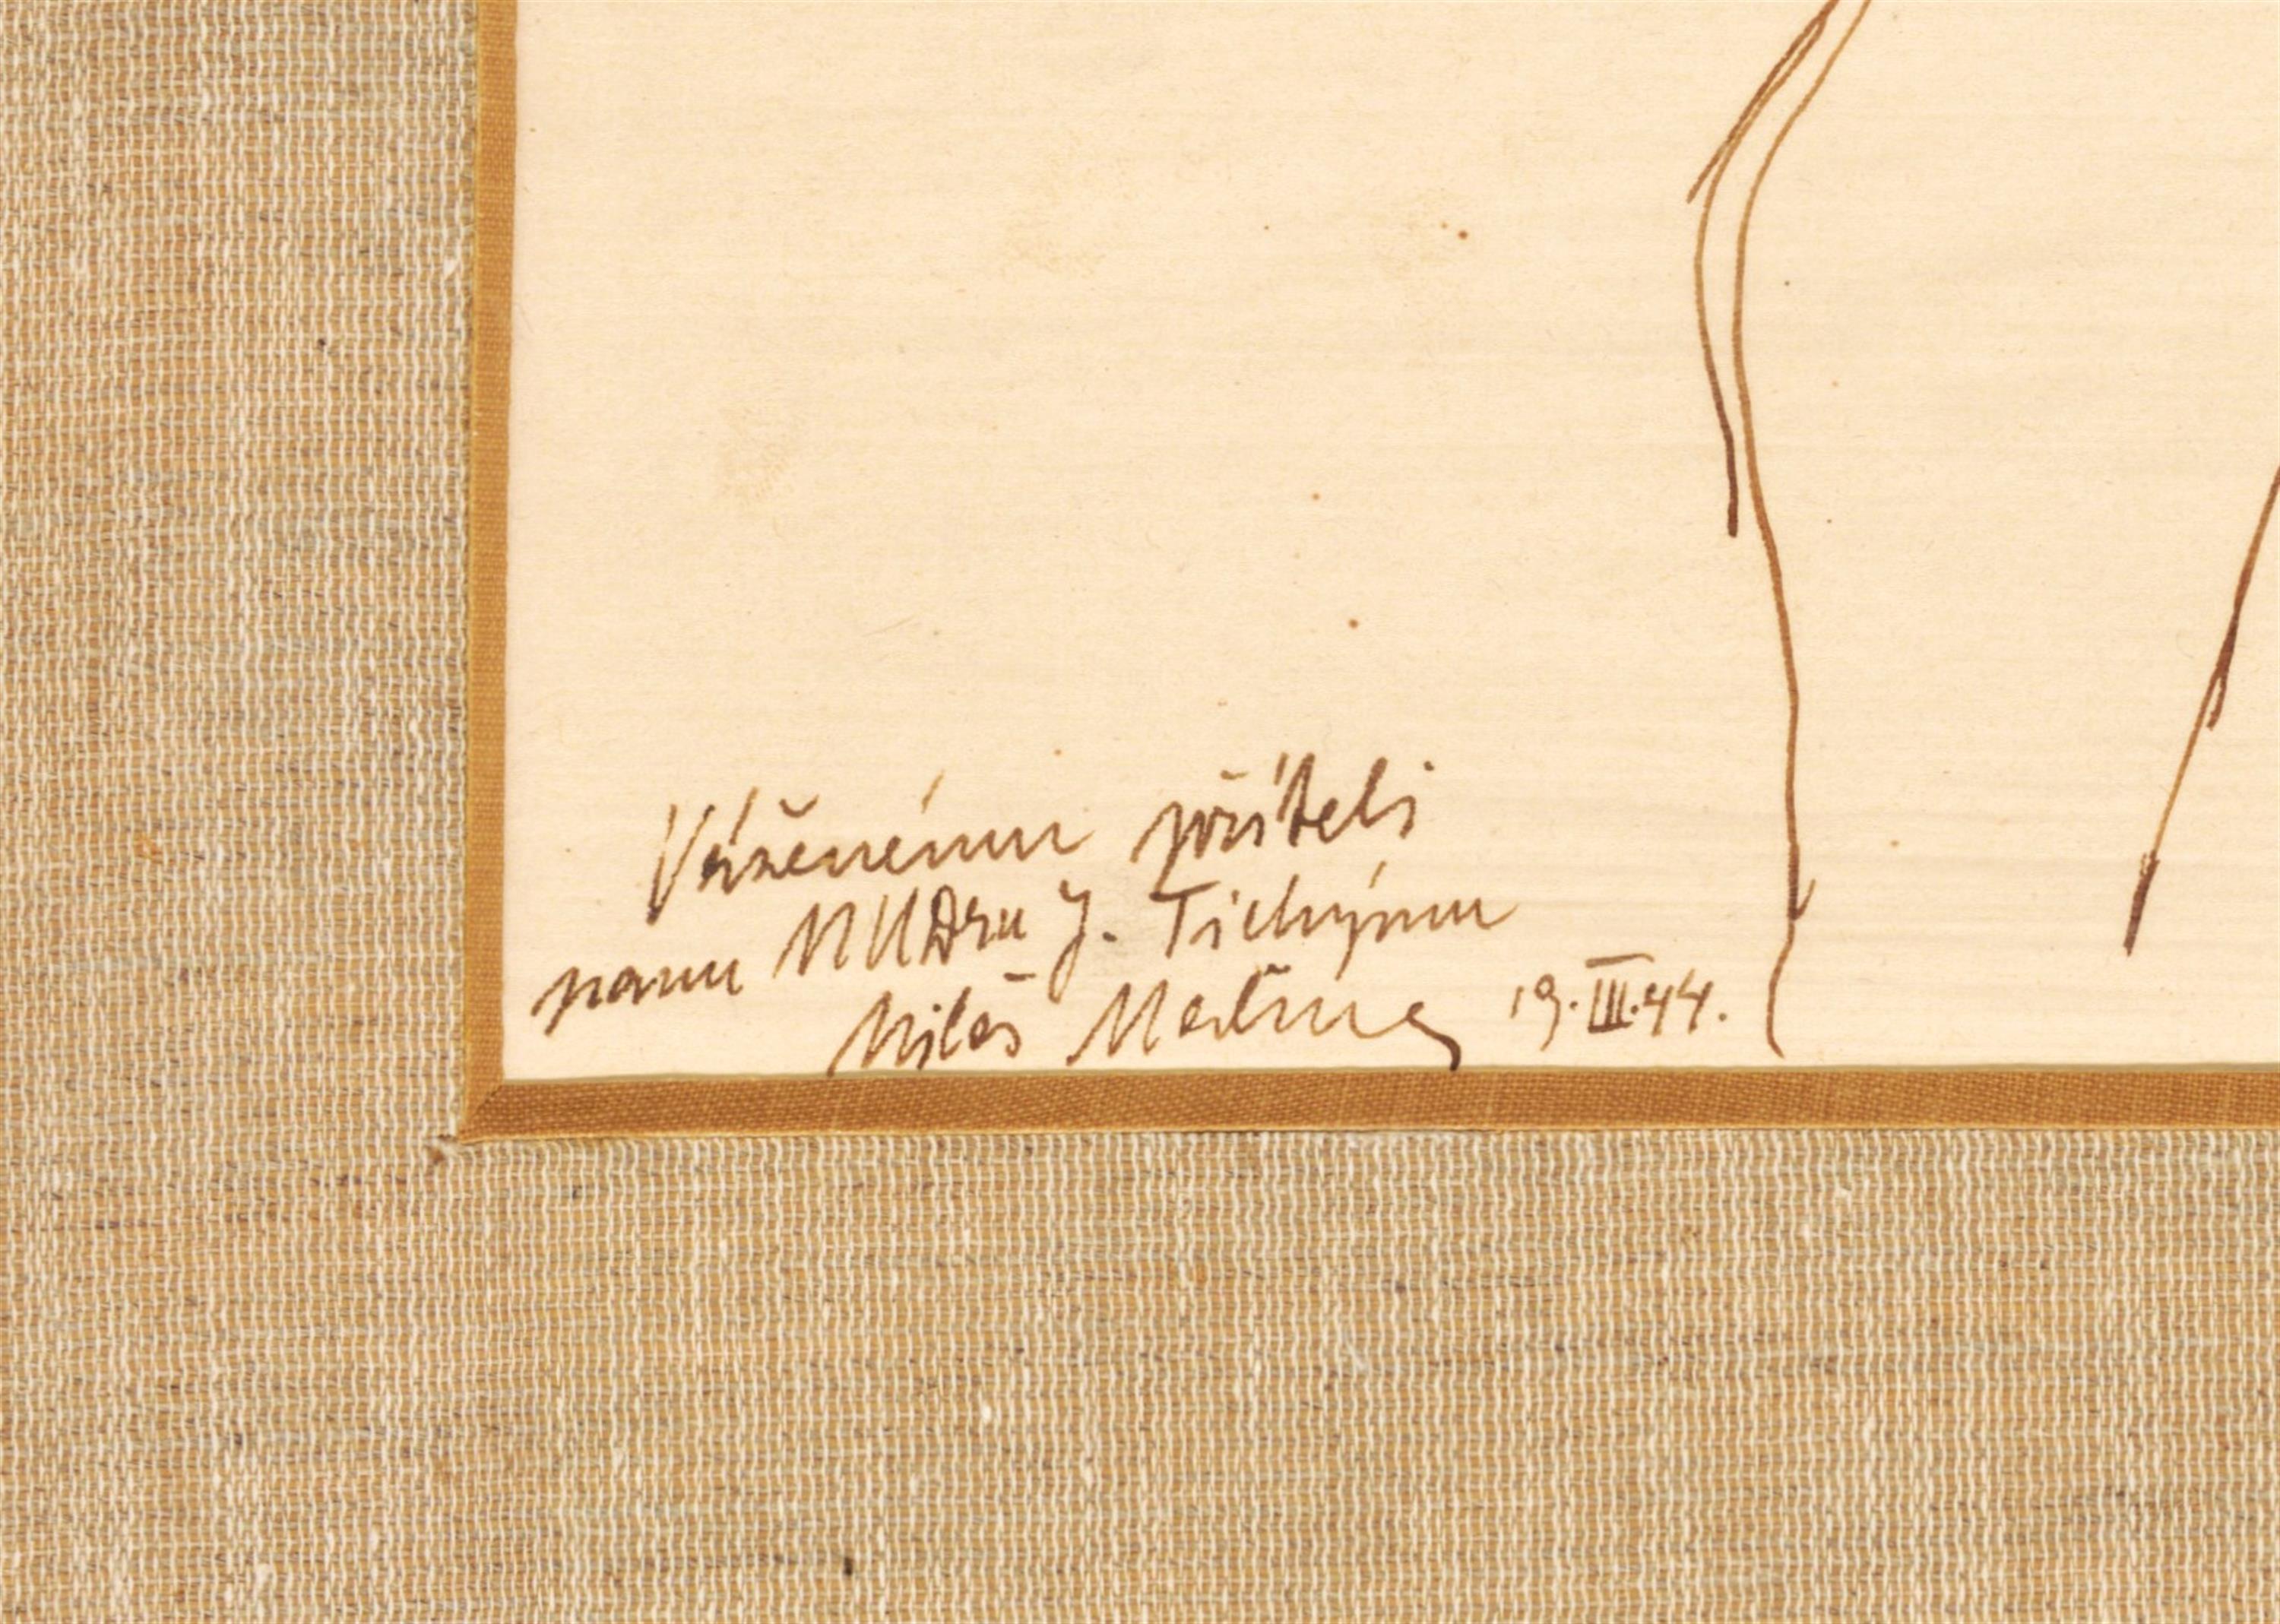 Váženému příteli
panu MUDru J. Tichýmu
Miloš Malina 19.III.44.